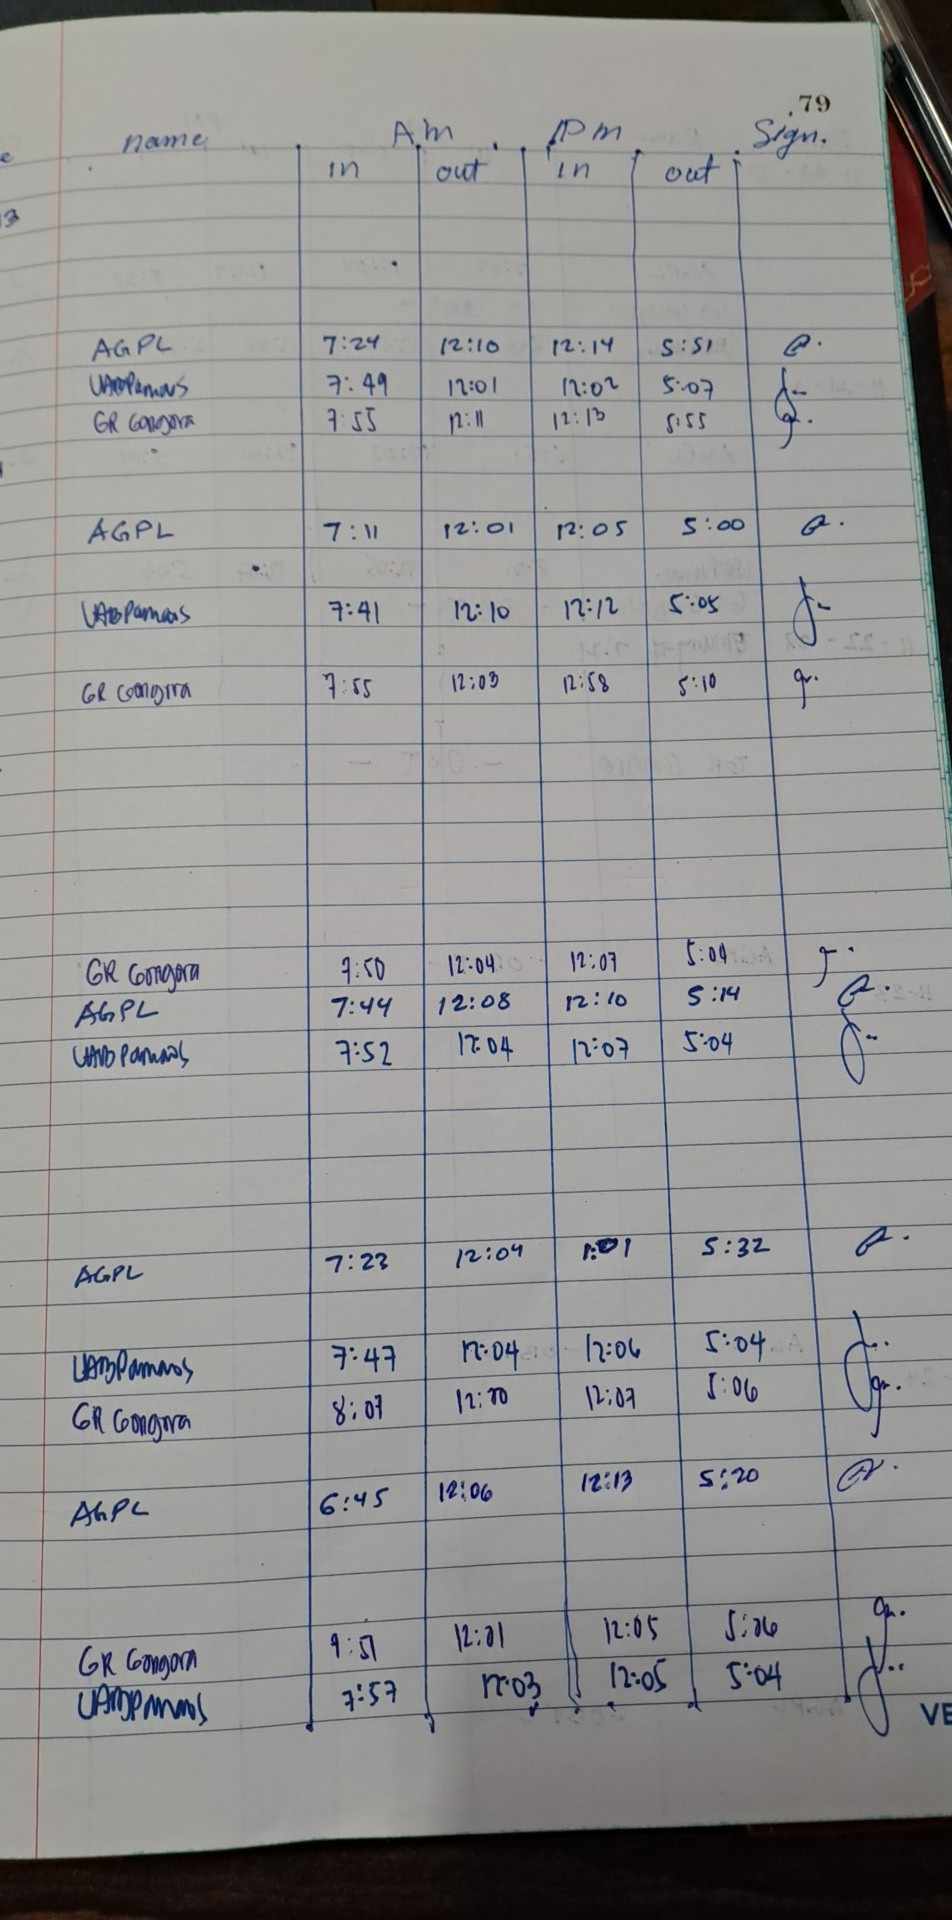 79
name Am Pm Sign.
in out in out
AGPL 7:24 12:10 12:14 5:51
7:49 12:01 12:02 5:07
GR Gongora 7:55 12:11 12:13 5:55
AGPL 7:11 12:01 12:05 5:00
7:41 12:10 12:12 5:05
GR Gongora 7:55 12:03 12:58 5:10
GR Gongora 7:50 12:04 12:07 5:04
AGPL 7:44 12:08 12:10 5:14
7:52 12:04 12:07 5:04
AGPL 7:23 12:04 1:01 5:32
7:47 12:04 12:06 5:04
GR Gongora 8:07 12:07 5:06
AGPL 6:45 12:06 12:13 5:20
GR Gongora 12:01 12:05 5:06
7:57 12:03 12:05 5:04
VE